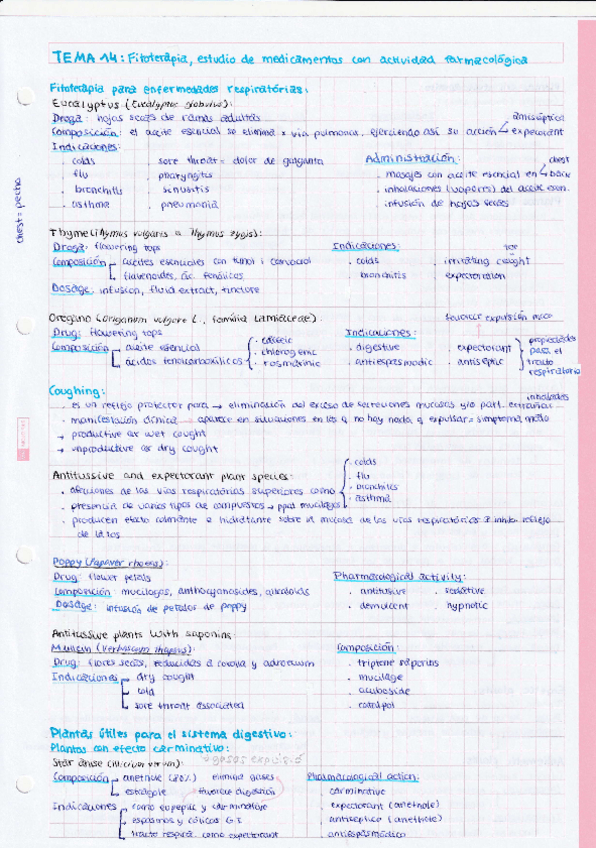 TEMA 14: Fitoterápia, estudio de medicamentos con actividad farmacológica
Fitoterápia para enfermedades respiratórias:
Eucalyptus (Eucalyptus globulus):
Droga: hojas secas de ramas adultas
antiséptica
Composición: el aceite esencial se elimina x vía pulmonar, ejerciendo así su acción expectorant
Indicaciones:
. colds . sore throat = dolor de garganta
. flu . pharyngitis
. bronchitis . sinusitis
. asthma . pneumonia
Administración:
chest
. masajes con aceite esencial en back
. inhalaciones (vapores) del aceite esen.
. infusión de hojas secas
chest = pecho
Thyme (Thymus vulgaris o Thymus zygis):
Droga: flowering tops
Composición aceites esenciales con timol i carvacrol
flavenoides, ác. fenólicos
Dosage: infusion, fluid extract, tincture
Indicaciones:
tos
. colds . irritating cought
bronchitis expectoration
Oregano (origanum vulgare L., família Lamiaceae)
Drug: flowering tops
Composición aceite esencial
ácidos fenocarboxílicos
. cafeic
. chlorogenic
. rosmarinic
favorecer expulsión moco
Indicaciones:
. digestive . expectorant
. antiespasmodic . antiseptic
propiedades
para el
tracto
respiratorio
Coughing:
inhalados
. es un reflejo protector para → eliminación del exceso de secreciones mucosas y/o part. extrañas
. manifestación clínica → aparece en situaciones en las q no hay nada q expulsar = symptoma
→ productive or wet cought
→ unproductive or dry cought
Antitussive and expectorant plant species:
. afecciones de las vías respiratórias superiores como
. colds
. flu
. bronchitis
. asthma
. presencia de varios tipos de compuestos → ppal mucílagos
. producen efecto calmante e hidratante sobre la mucosa de las vías respiratórias e inhib. reflejo
de la tos
Poppy (Papaver rhoeas):
Drug: flower petals
Composición: mucilagos, anthocyanosides, alcaloids
Dosage: infusión de petalos de poppy
Pharmacological activity:
. antitusive . sedative
. demulcent . hypnotic
Antitussive plants with saponins
Mullein (Verbascum thapsus):
Drug: flores secas, reducidas a corola y androceum
Indicaciones → dry cought
cold
sore throat associated
Composición:
. triptene saponins
. mucilage
. aucuboside
. catalpol
Plantas útiles para el sistema digestivo:
Plantas con efecto carminativo:
→ gases expulsió
Star anise (Illicium verum):
Composición anetnole (80%) elimina gases
estragole favorece digestión
Indicaciones como eupeptic y carminative
espasmos y cólicos G.I
tracto respira. como expectorant
Pharmacological action:
. carminative
. expectorant (anethole)
. antiseptico (anethole)
. antiespásmódico